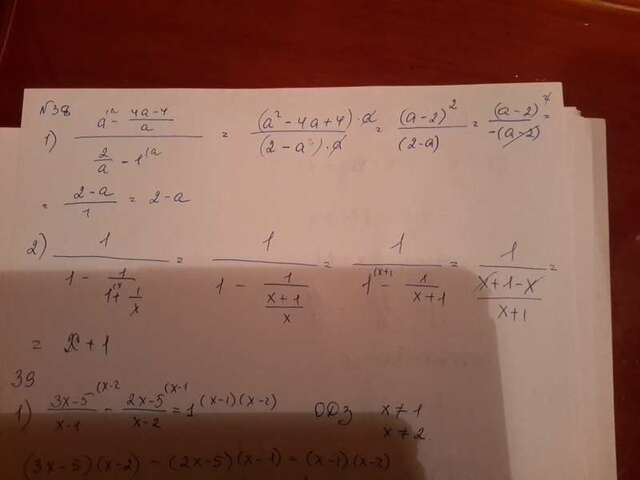 №38
1) (a^(a - (4a-4)/a) / (2/a - 1^(a) = ((a²-4a+4)·a)/((2-a)·a) = (a-2)²/(2-a) = (a-2)²/-(a-2) =
= (2-a)/1 = 2-a
2) 1/(1 - 1/(1^(x + 1/x)) = 1/(1 - 1/((x+1)/x)) = 1/(1^(x+1 - 1/(x+1)) = 1/((x+1-x)/(x+1)) =
= x+1
39
1) (3x-5)/(x-1)^(x-2 - (2x-5)/(x-2)^(x-1 = 1^(x-1)(x-2) ОДЗ x≠1
x≠2.
(3x-5)(x-2) - (2x-5)(x-1) = (x-1)(x-2)